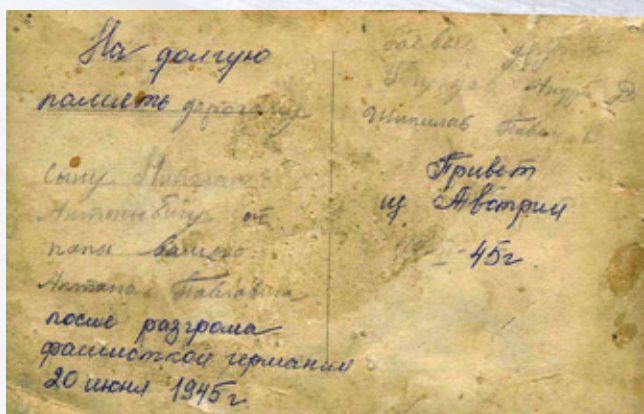 На долгую
память дорогому
сыну
Антоновичу от
папы вашего
Антона Павловича
после разгрома
фашисткой германии
20 июня 1945г.
боевые друзья
Шипилов
Привет
из Австрии
45г